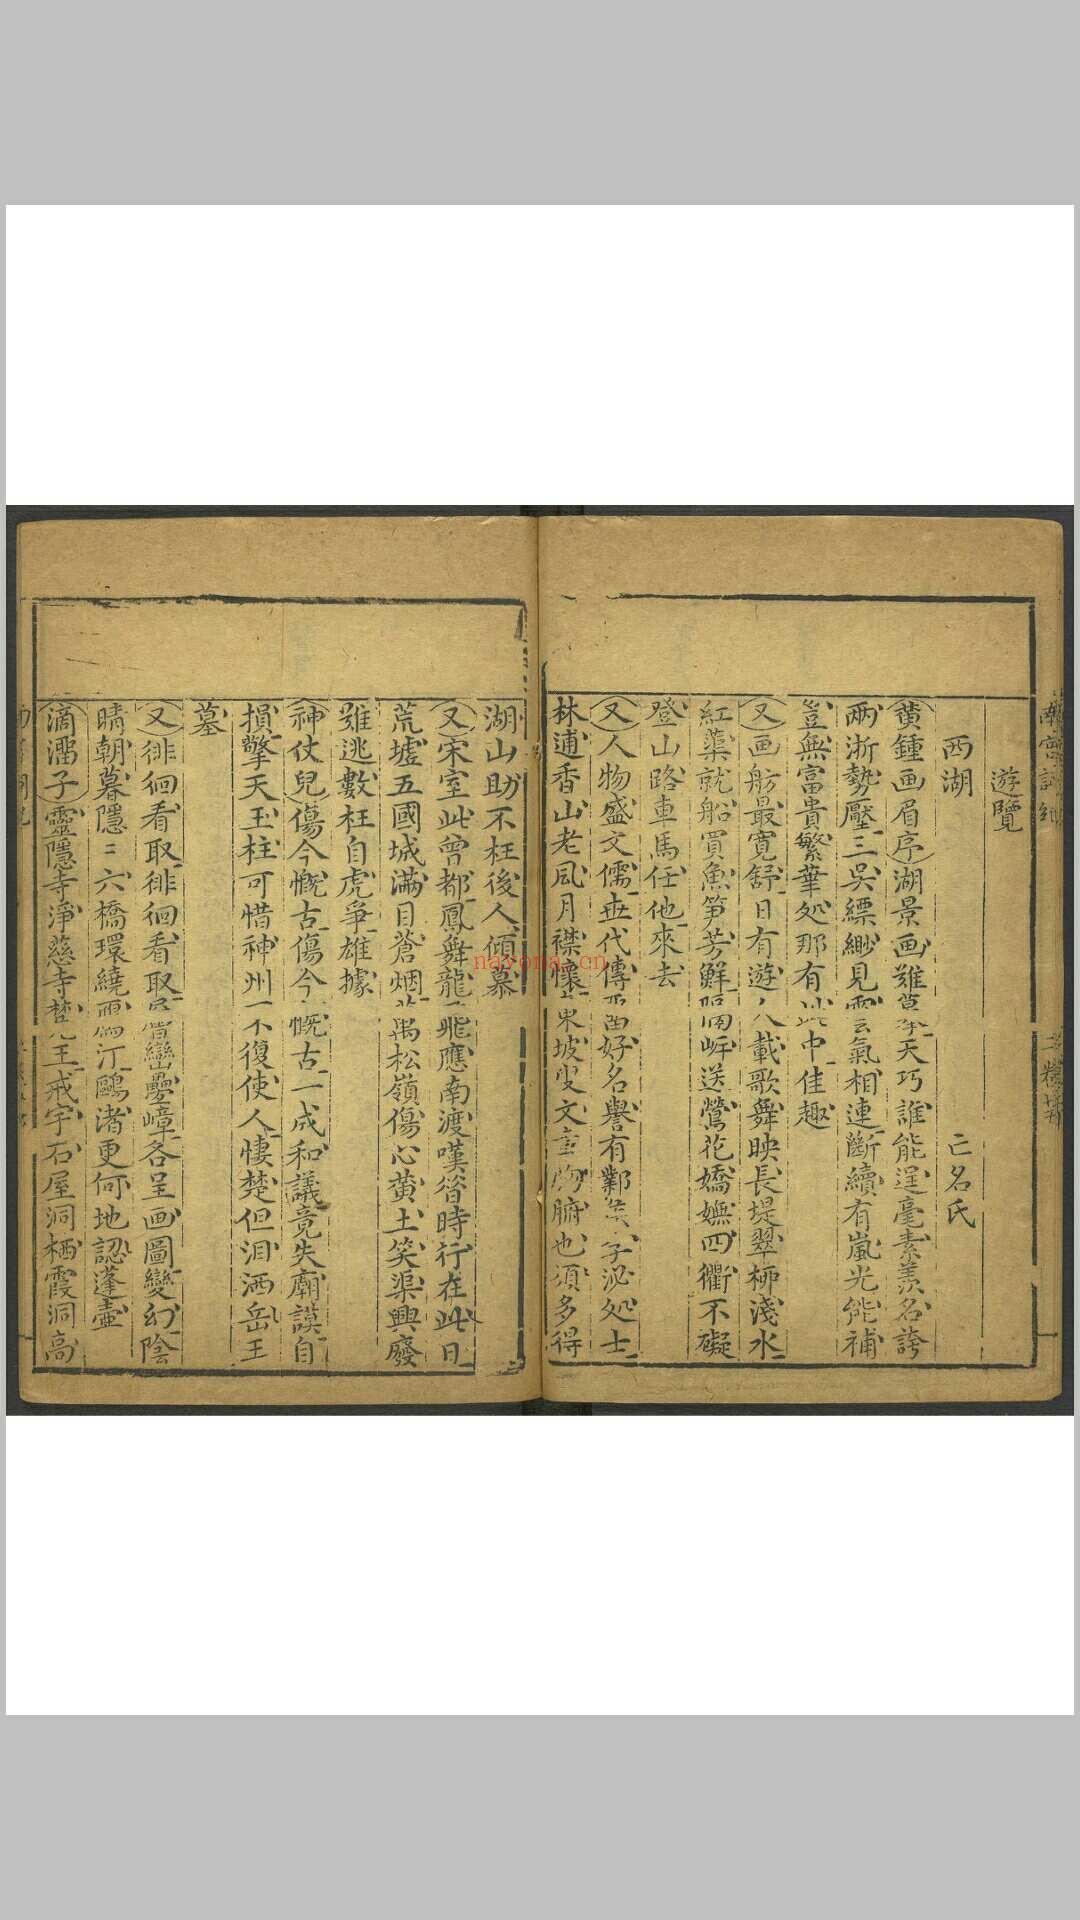 遊覽
西湖 亡名氏
黄鍾画眉序湖景画難摹天巧誰能逞毫素羨名誇
兩浙勢壓三吳縹緲見雲氣相連斷續有嵐光能補
豈無富貴繁華処那有此中佳趣
又画舫最寛舒日有遊人載歌舞映長堤翠柳淺水
紅蕖就船買魚笋芳鮮隔岸送鶯花嬌嫵四衢不礙
登山路車馬任他來去
又人物盛文儒世代傳西好名譽有鄴侯字泌処士
林逋香山老風月襟懷東坡叟文章胸腑也須多得
湖山助不枉後人傾慕
又宋室此曾都鳳舞龍飛應南渡嘆當時行在此日
荒墟五國城滿目蒼烟萬松嶺傷心黄土笑渠興廢
難逃數枉自虎爭雄據
神仗兒傷今慨古傷今慨古一成和議竟失廟謨自
損擎天玉柱可惜神州不復使人悽楚但淚洒岳王
墓
又徘徊看取徘徊看取層巒疊嶂各呈画圖變幻陰
晴朝暮隱〻六橋環繞兩汀鷗渚更何地認蓬壺
滴溜子靈隱寺淨慈寺梵王戒宇石屋洞栖霞洞高
nayona.cn